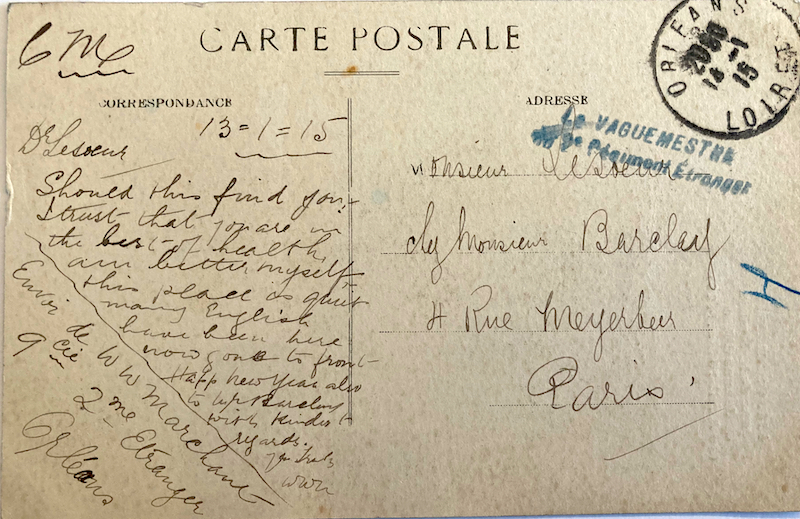 C M
CARTE POSTALE
CORRESPONDANCE
ADRESSE
13=1=15
Dr Lesoeur
Should this find you
I trust that you are in
the best of health,
am better myself
this place is quiet
many English
have been here
now gone to front
Happ New Year also
to Mr Barclay
with kindest
regards.
WWM
Envoi de W W Marchant
9 Cie 2me Etranger
Orléans
ORLEANS
20
13 -1
15
LOIRET
Le VAGUEMESTRE
du 2e Régiment Étranger
Monsieur Lesoeur
chez Monsieur Barclay
4 Rue Meyerbeer
Paris